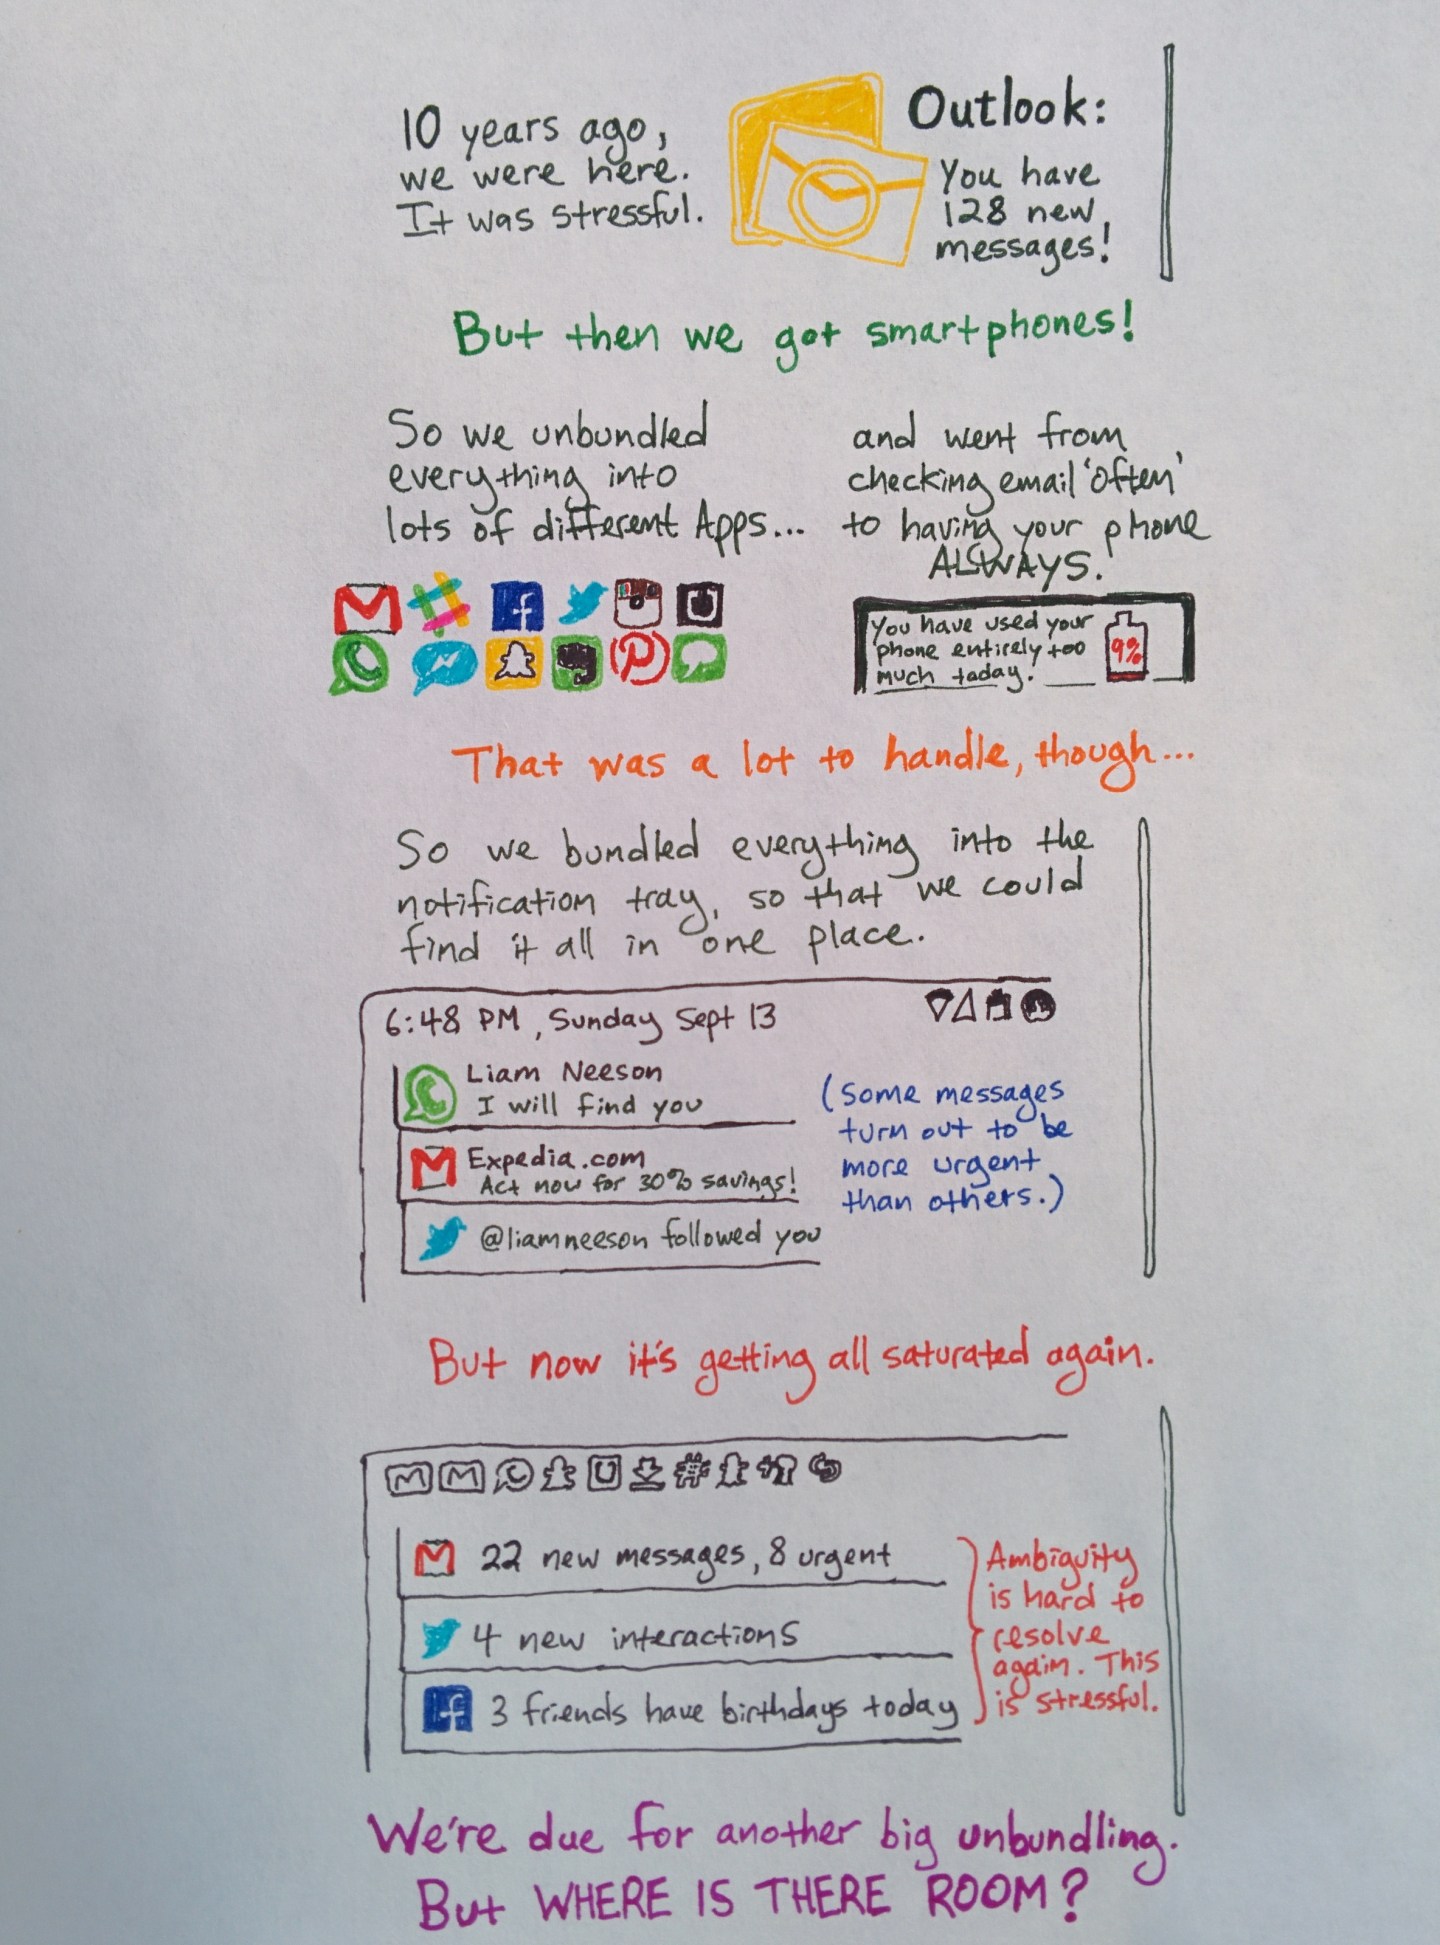 10 years ago,
we were here.
It was stressful.
Outlook:
You have
128 new
messages!
But then we got smartphones!
So we unbundled
everything into
lots of different Apps...
and went from
checking email 'often'
to having your phone
ALWAYS.
You have used your
phone entirely too
much today.
9%
That was a lot to handle, though...
So we bundled everything into the
notification tray, so that we could
find it all in one place.
6:48 PM, Sunday Sept 13
Liam Neeson
I will find you
Expedia.com
Act now for 30% savings!
@liamneeson followed you
(some messages
turn out to be
more urgent
than others.)
But now it's getting all saturated again.
22 new messages, 8 urgent
4 new interactions
3 friends have birthdays today
Ambiguity
is hard to
resolve
again. This
is stressful.
We're due for another big unbundling.
But WHERE IS THERE ROOM?